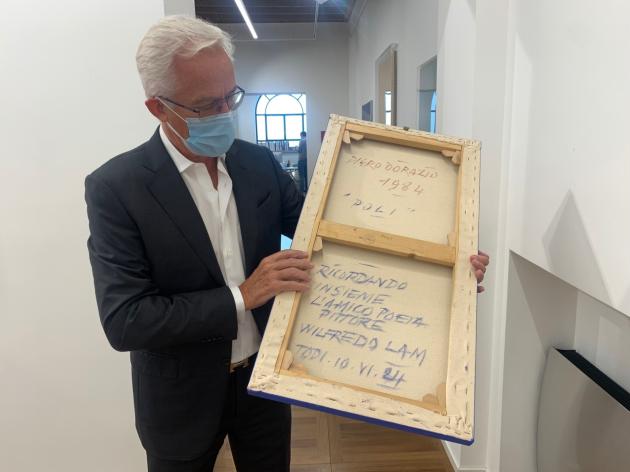 PIERO DORAZIO
1984
"POLI"
RICORDANDO
INSIENE
L'AMICO POETA
PITTORE
WILFREDO LAM
TODI. 10. VI. 84